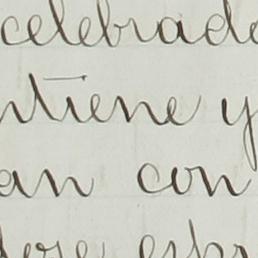 celebrado
ntiene y
an con